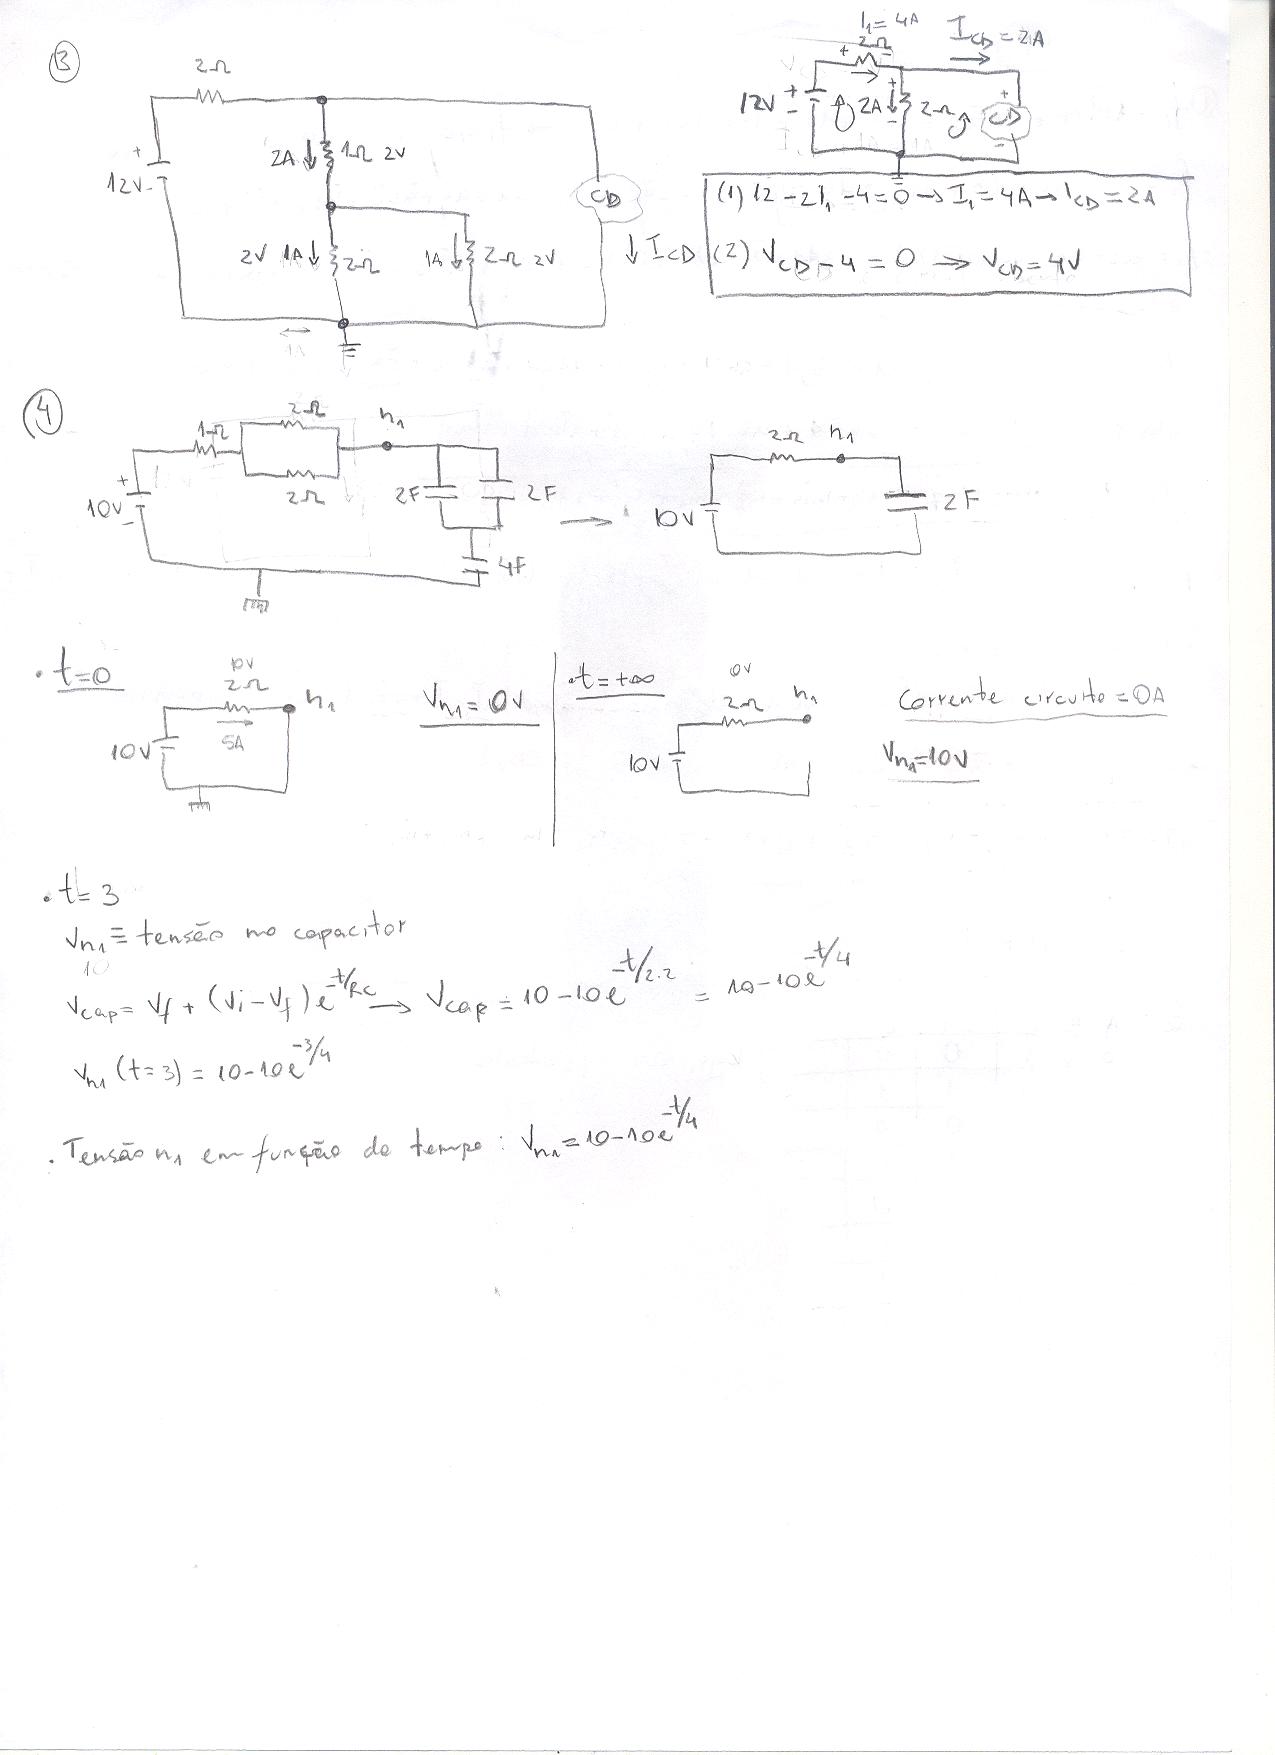 3
2Ω
12V
+
-
2A ↓ 1Ω 2V
2V 1A ↓ 2Ω
1A ↓ 2Ω 2V
CD
↓ I_CD
1A
I₁ = 4A
2Ω
I_CD = 2A
12V
+
-
2A
2Ω
CD
(1) 12 - 2I₁ - 4 = 0 → I₁ = 4A → I_CD = 2A
(2) V_CD - 4 = 0 → V_CD = 4V
4
10V
+
-
1Ω
2Ω
2Ω
n₁
2F
2F
4F
→
10V
2Ω
n₁
2F
• t=0
10V
2Ω
n₁
5A
10V
V_n₁ = 0V
• t = +∞
0V
2Ω
n₁
10V
Corrente circuito = 0A
V_n₁ = 10V
• t = 3
V_n₁ ≡ tensão no capacitor
10
V_cap = V_f + (V_i - V_f) e^(-t/RC) → V_cap = 10 - 10e^(-t/2.2) = 10 - 10e^(-t/4)
V_n₁ (t=3) = 10 - 10e^(-3/4)
• Tensão n₁ em função do tempo: V_n₁ = 10 - 10e^(-t/4)